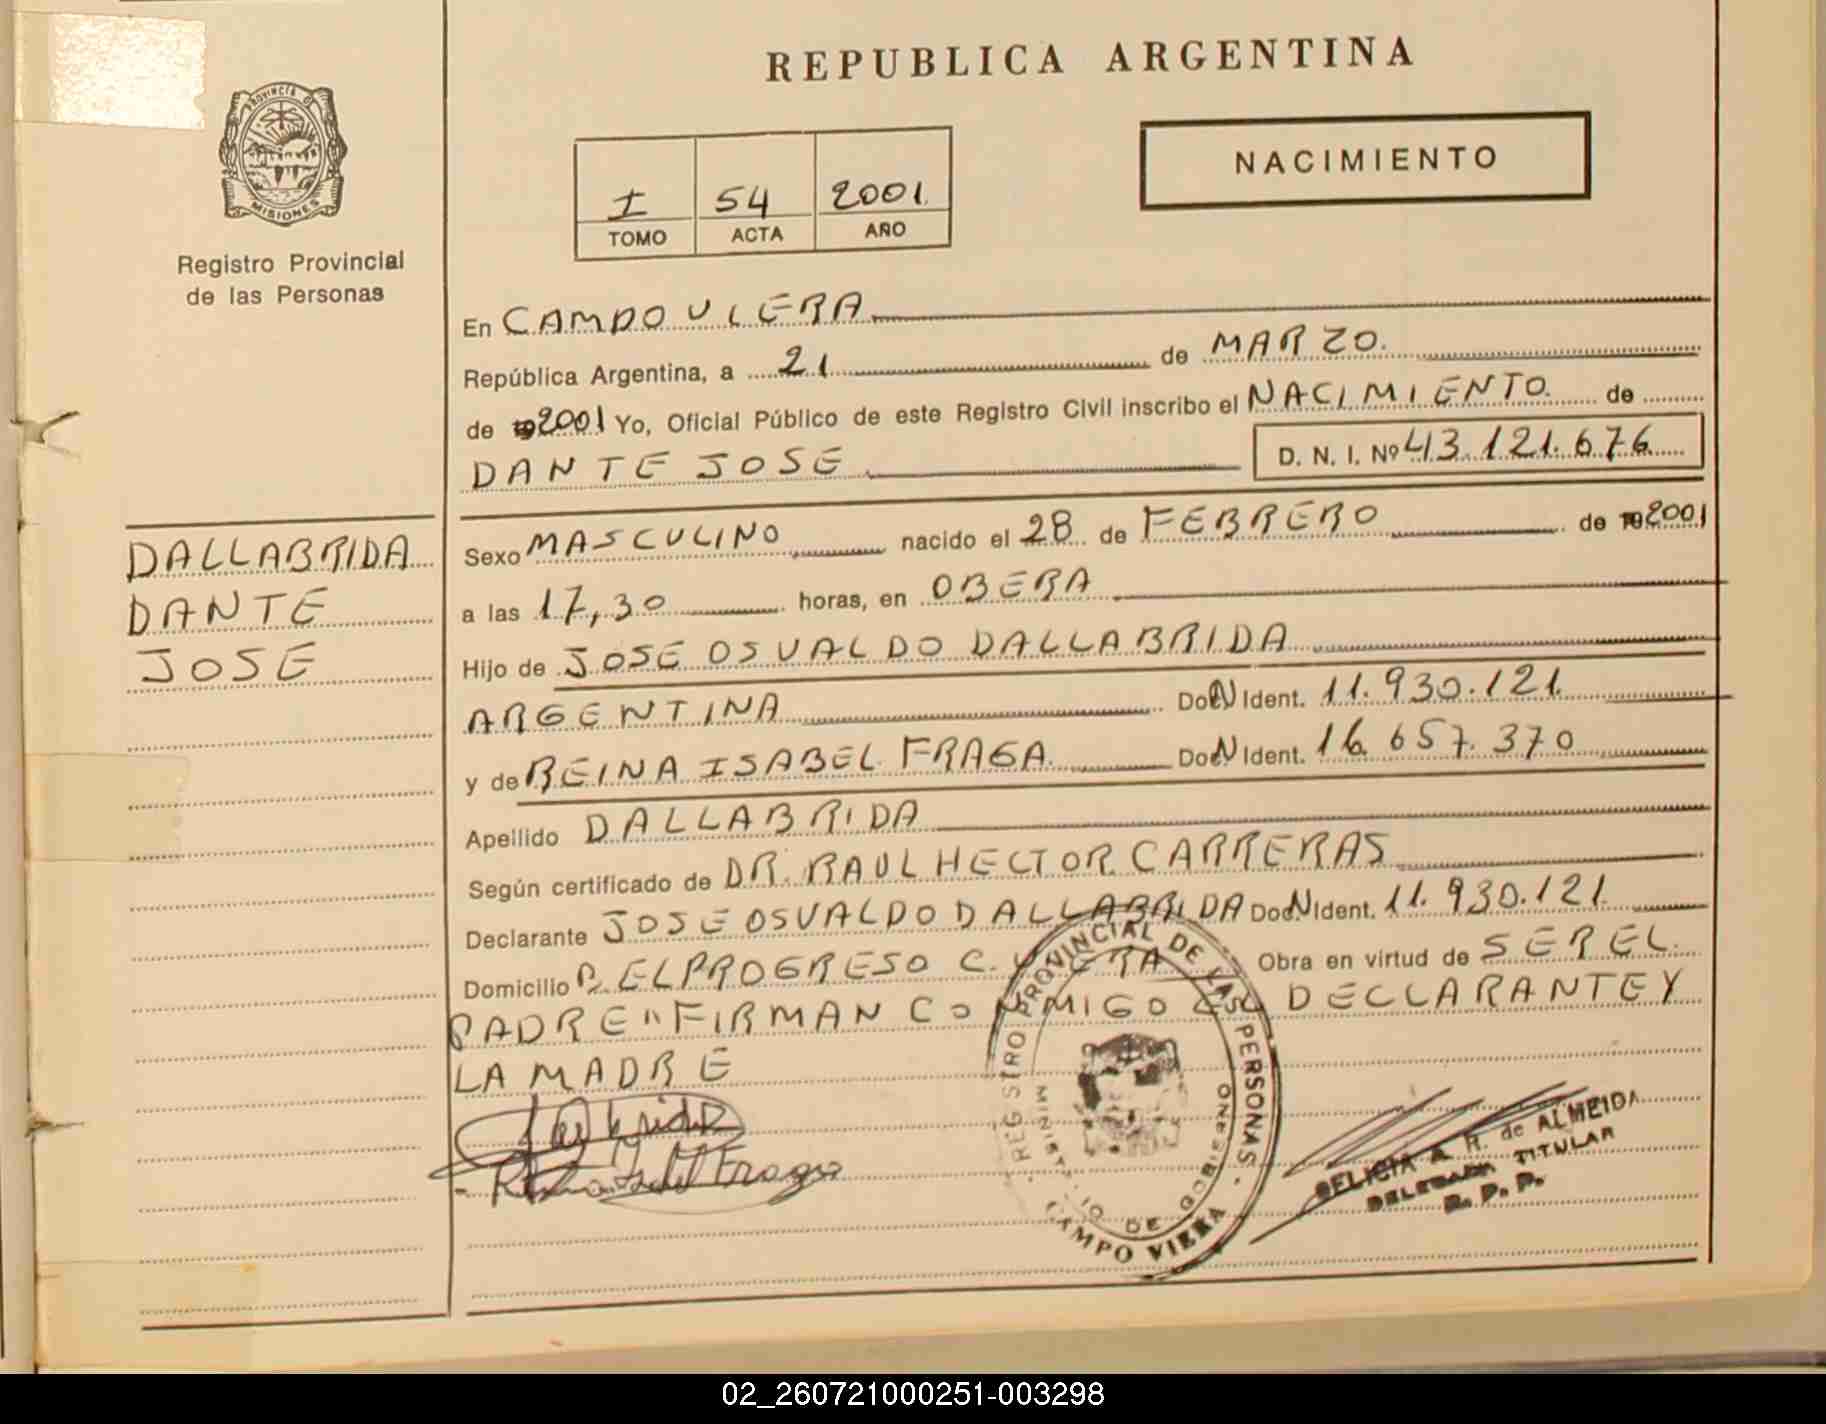 REPUBLICA ARGENTINA
PROVINCIA DE MISIONES
Registro Provincial
de las Personas
NACIMIENTO
I 54 2001
TOMO ACTA AÑO
En CAMPO VIERA
República Argentina, a 21 de MARZO.
de 192001 Yo, Oficial Público de este Registro Civil inscribo el NACIMIENTO de
DANTE JOSE D. N. I. Nº 43.121.676
DALLABRIDA
DANTE
JOSE
Sexo MASCULINO nacido el 28 de FEBRERO de 192001
a las 17,30 horas, en OBERA
Hijo de JOSE OSVALDO DALLABRIDA
ARGENTINA Doc N Ident. 11.930.121
y de REINA ISABEL FRAGA Doc N Ident. 16.657.370
Apellido DALLABRIDA
Según certificado de DR. RAUL HECTOR CARRERAS
Declarante JOSE OSVALDO DALLABRIDA Doc N Ident. 11.930.121
Domicilio B. EL PROGRESO C. VIERA Obra en virtud de SER EL
PADRE" FIRMAN CONMIGO EL DECLARANTE Y
LA MADRE
REGISTRO PROVINCIAL DE LAS PERSONAS
MINISTERIO DE GOBIERNO
CAMPO VIERA
Fraga
DELICIA A. R. de ALMEIDA
DELEGADA TITULAR
R. P. P.
02_260721000251-003298